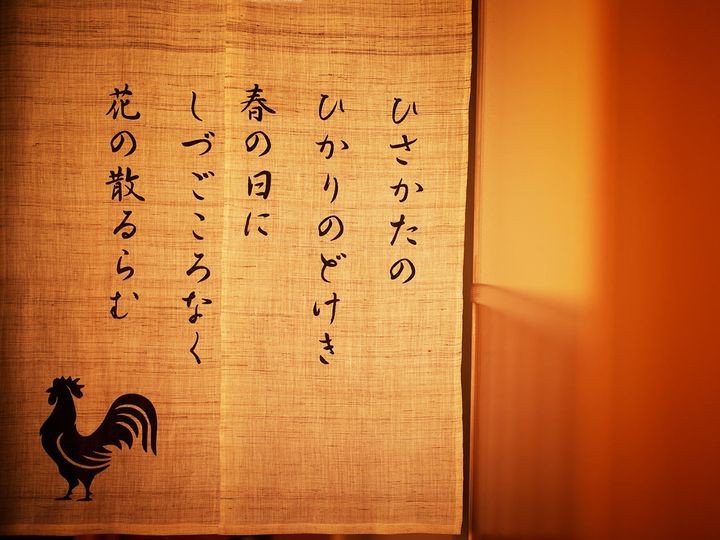 ひさかたの
ひかりのどけき
春の日に
しづごころなく
花の散るらむ